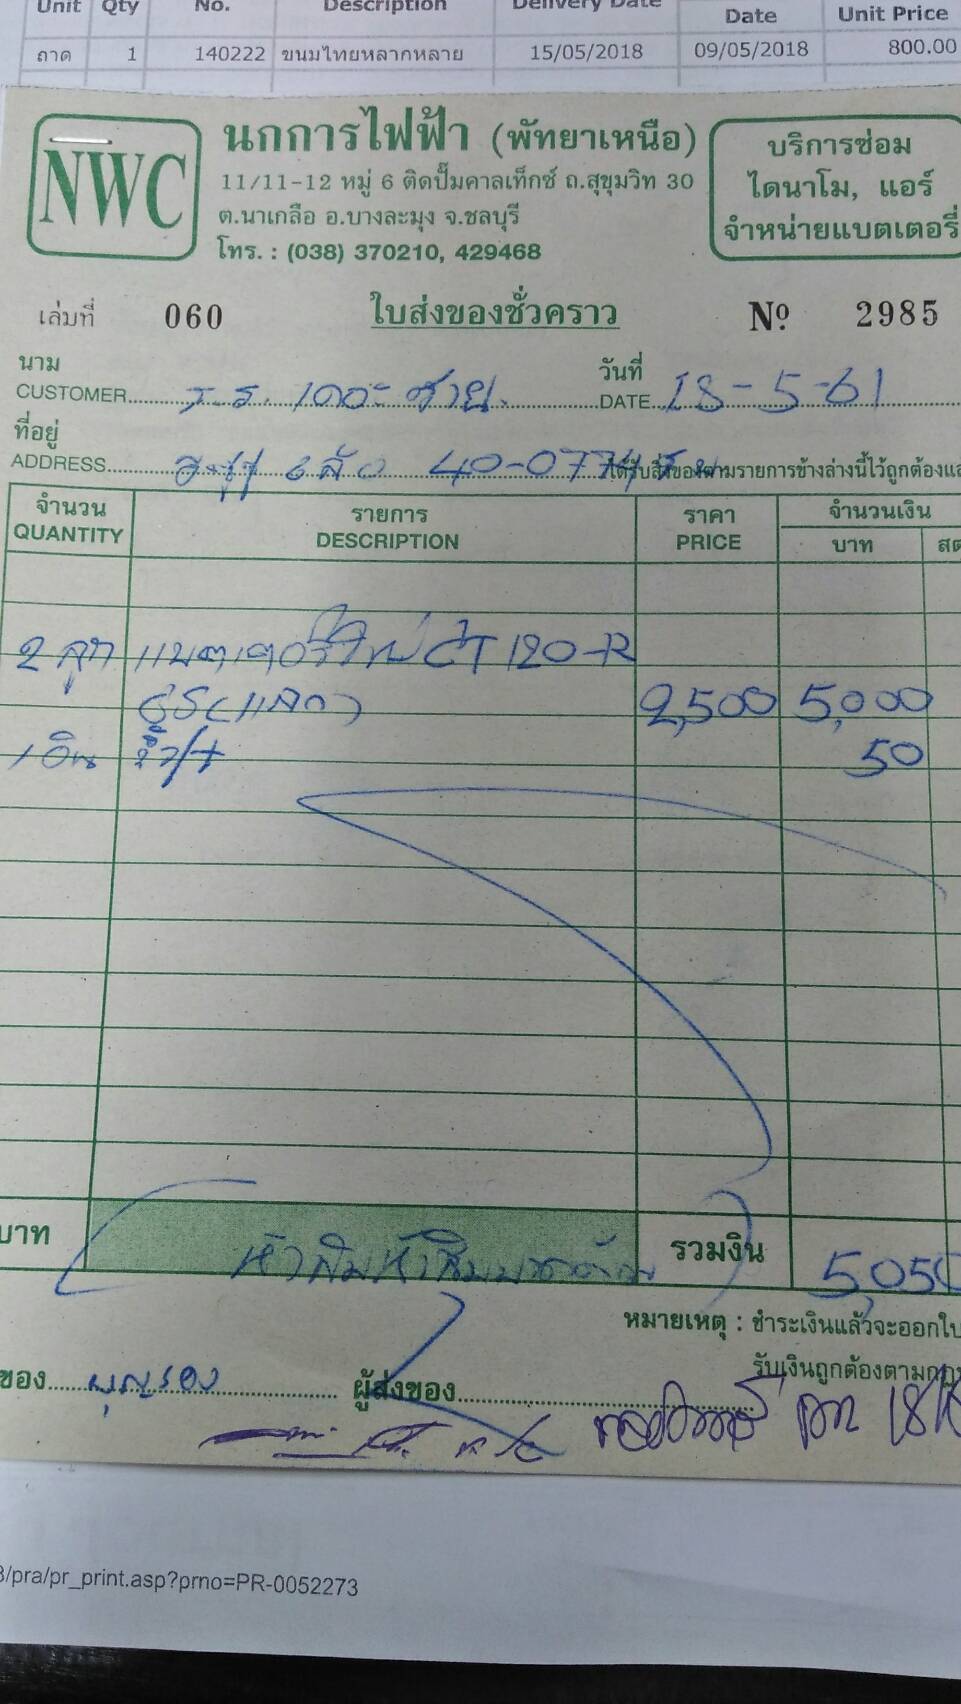 Unit Qty No. Description Delivery Date Date Unit Price
ถาด 1 140222 ขนมไทยหลากหลาย 15/05/2018 09/05/2018 800.00
NWC
นกการไฟฟ้า (พัทยาเหนือ)
11/11-12 หมู่ 6 ติดปั๊มคาลเท็กซ์ ถ.สุขุมวิท 30
ต.นาเกลือ อ.บางละมุง จ.ชลบุรี
โทร. : (038) 370210, 429468
บริการซ่อม
ไดนาโม, แอร์
จำหน่ายแบตเตอรี่
เล่มที่ 060 ใบส่งของชั่วคราว Nº 2985
นาม วันที่
CUSTOMER ร.ร. เดอะ ซายน์ DATE 18-5-61
ที่อยู่
ADDRESS 6 ล้อ 40-0774 ได้รับสิ่งของตามรายการข้างล่างนี้ไว้ถูกต้องแล
จำนวน รายการ ราคา จำนวนเงิน
QUANTITY DESCRIPTION PRICE บาท สต
2 ลูก แบตเตอรี่ใหม่ CT 120-R
GS (แลก) 2,500 5,000
1 อัน ขั้ว/+ 50
บาท ห้าพันห้าสิบบาทถ้วน รวมเงิน 5,050
หมายเหตุ : ชำระเงินแล้วจะออกใบ
รับเงินถูกต้องตามกฎ
ของ บุญรอง ผู้ส่งของ
3/pra/pr_print.asp?prno=PR-0052273